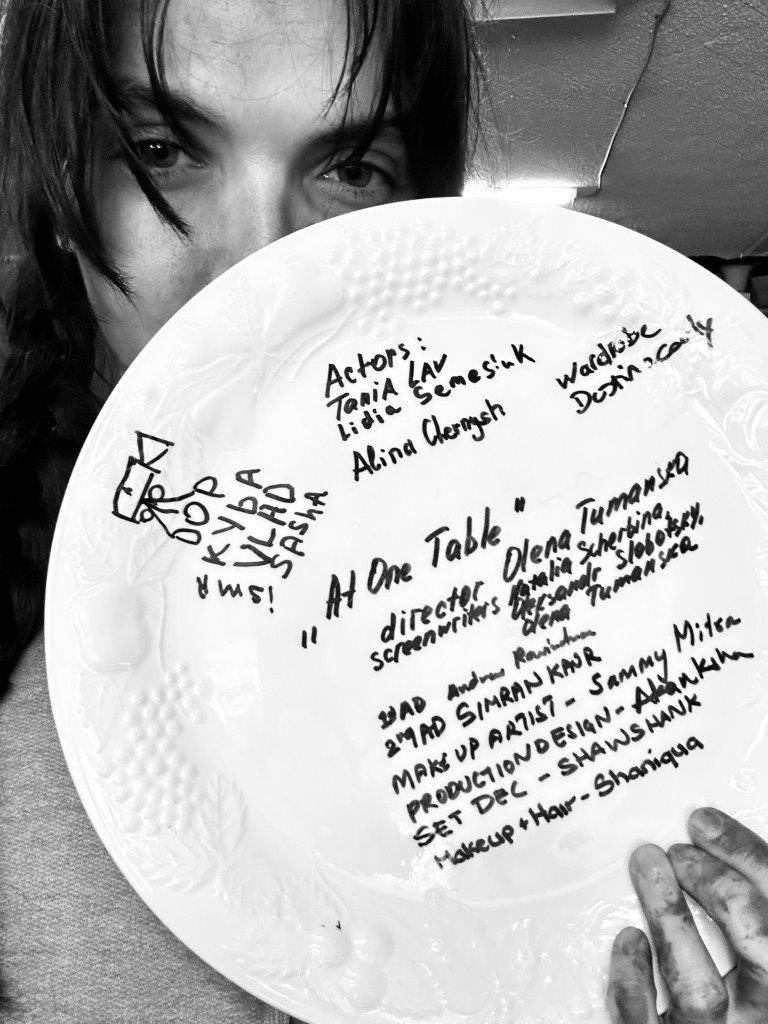 Actors:
Tania LAV
Lidia Semesiuk
Alina Chernysh
Wardrobe
DOP
KYBA
VLAD
SASHA
"At One Table"
director Olena Tumanska
screenwriters Natalia Scherbina,
Oleksandr Slobotsky,
Olena Tumanska
1st AD Andrew
2nd AD SIMRAN KAUR
MAKE UP ARTIST - Sammy Mitra
PRODUCTION DESIGN -
SET DEC - SHAWSHANK
Makeup + Hair - Shaniqua